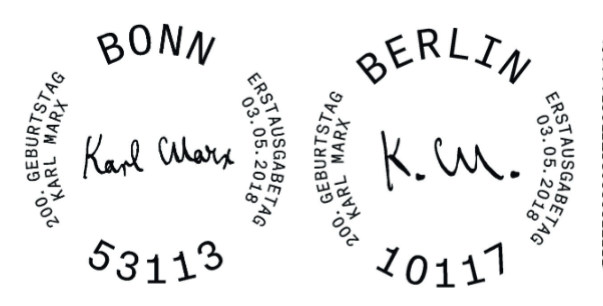 BONN
200. GEBURTSTAG
KARL MARX
Karl Marx
ERSTAUSGABETAG
03.05.2018
53113
BERLIN
200. GEBURTSTAG
KARL MARX
K. M.
ERSTAUSGABETAG
03.05.2018
10117